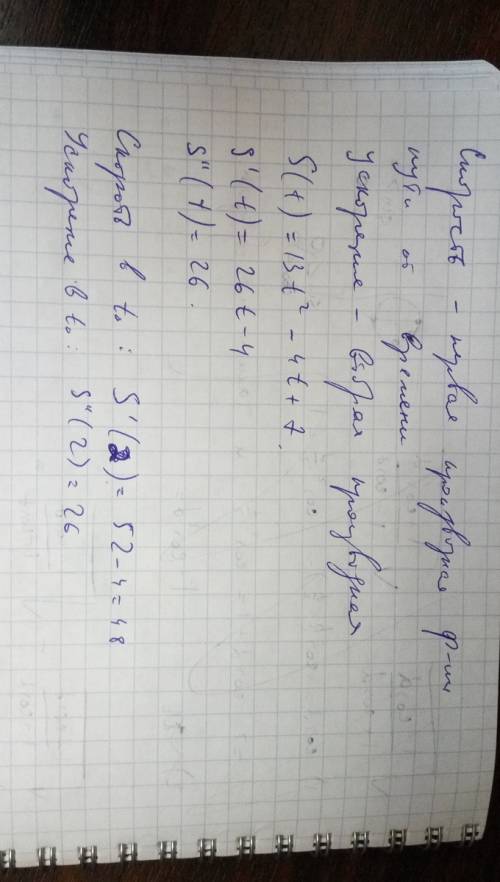 Скорость – первая производная ф-ии
пути от времени
Ускорение – вторая производная
S(t) = 13t² - 4t + 7.
S'(t) = 26t - 4
S''(t) = 26.
Скорость в t₀: S'(2) = 52 - 4 = 48
Ускорение в t₀: S''(2) = 26